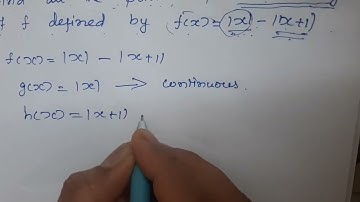 f f defined by f(x) = |x| - |x+1|
f(x) = |x| - |x+1|
g(x) = |x| → continuous.
h(x) = |x+1|